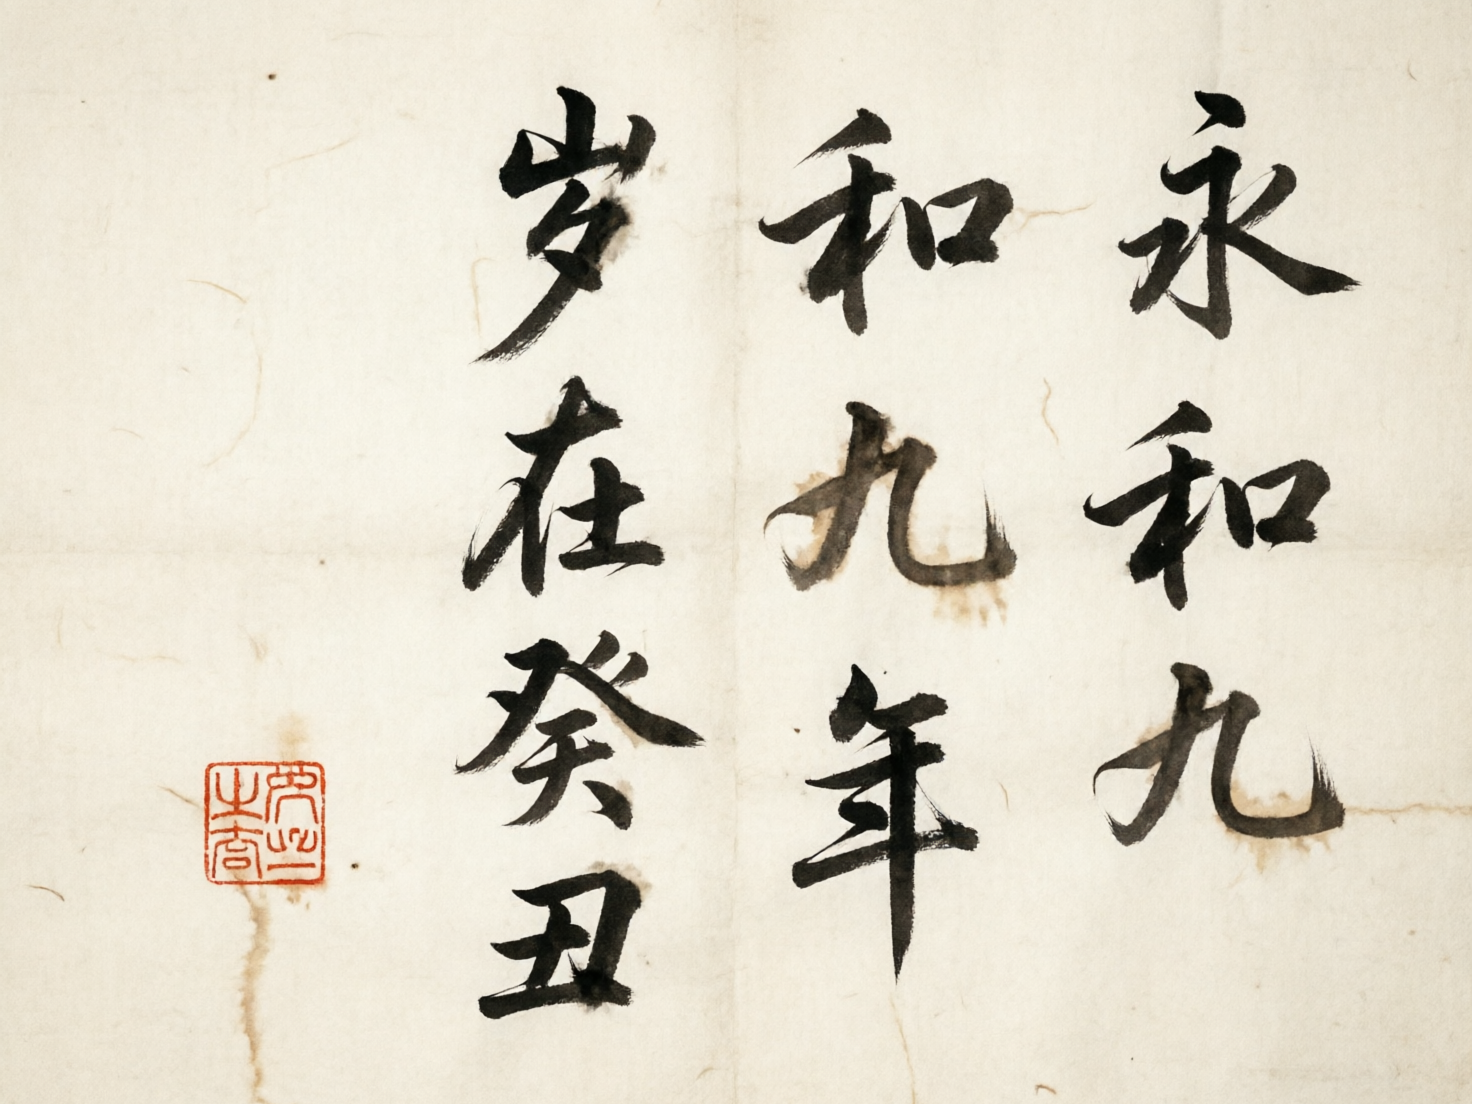 永和九
和九年
岁在癸丑